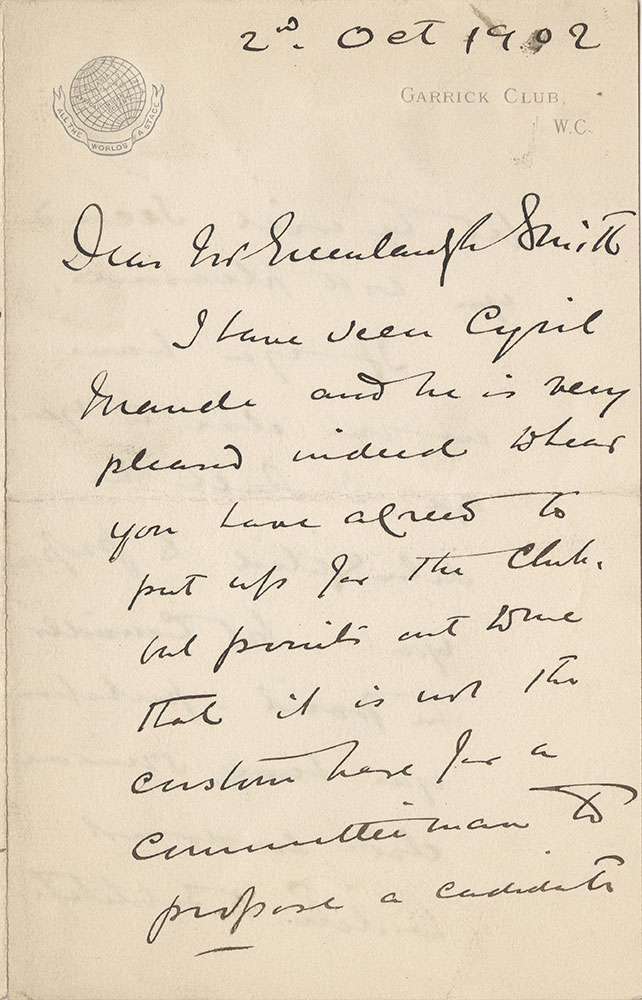 2nd. Oct 1902
GARRICK CLUB,
W.C.
ALL THE WORLDS A STAGE
Dear Mr Greenhaugh Smith
I have seen Cyril
Maude and he is very
pleased indeed to hear
you have agreed to
put up for the Club.
but points out to me
that it is not the
custom here for a
Committee man to
propose a candidate